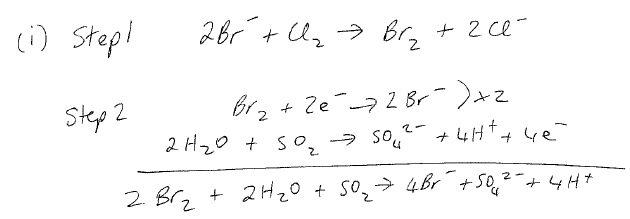 (i) Step 1 2Br⁻ + Cl₂ → Br₂ + 2Cl⁻
Step 2 Br₂ + 2e⁻ → 2Br⁻ )×2
2H₂O + SO₂ → SO₄²⁻ + 4H⁺ + 4e⁻
2Br₂ + 2H₂O + SO₂ → 4Br⁻ + SO₄²⁻ + 4H⁺